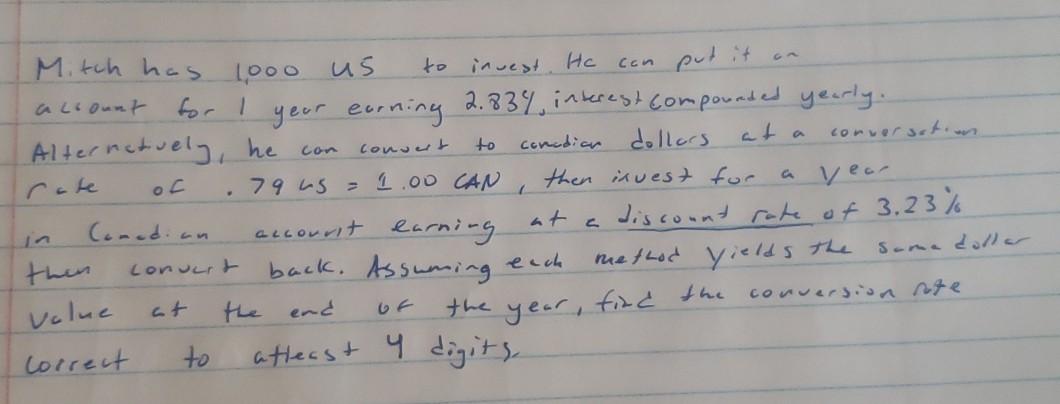 Mitch has 1,000 US to invest. He can put it an
account for 1 year earning 2.83%, interest compounded yearly.
Alternatively, he can convert to canadian dollars at a conversation
rate of .79 US = 1.00 CAN, then invest for a year
in Canadian account earning at a discount rate of 3.23%
then convert back. Assuming each method yields the same dollar
value at the end of the year, find the conversion rate
correct to atleast 4 digits.